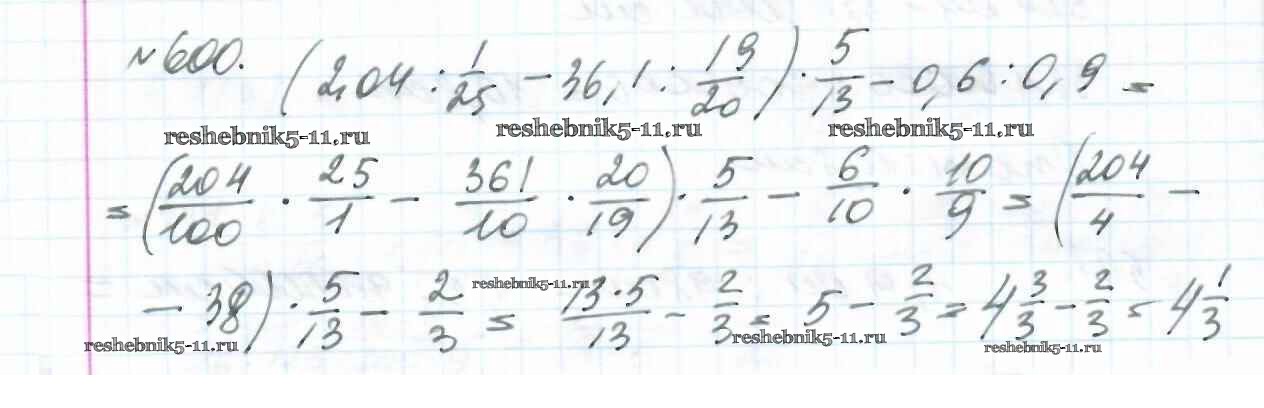 №600. (2,04 : 1/25 − 36,1 : 19/20) · 5/13 − 0,6 : 0,9 =
reshebnik5-11.ru reshebnik5-11.ru reshebnik5-11.ru
= (204/100 · 25/1 − 361/10 · 20/19) · 5/13 − 6/10 · 10/9 = (204/4 −
− 38) · 5/13 − 2/3 = 13·5/13 − 2/3 = 5 − 2/3 = 4 3/3 − 2/3 = 4 1/3
reshebnik5-11.ru
reshebnik5-11.ru reshebnik5-11.ru reshebnik5-11.ru